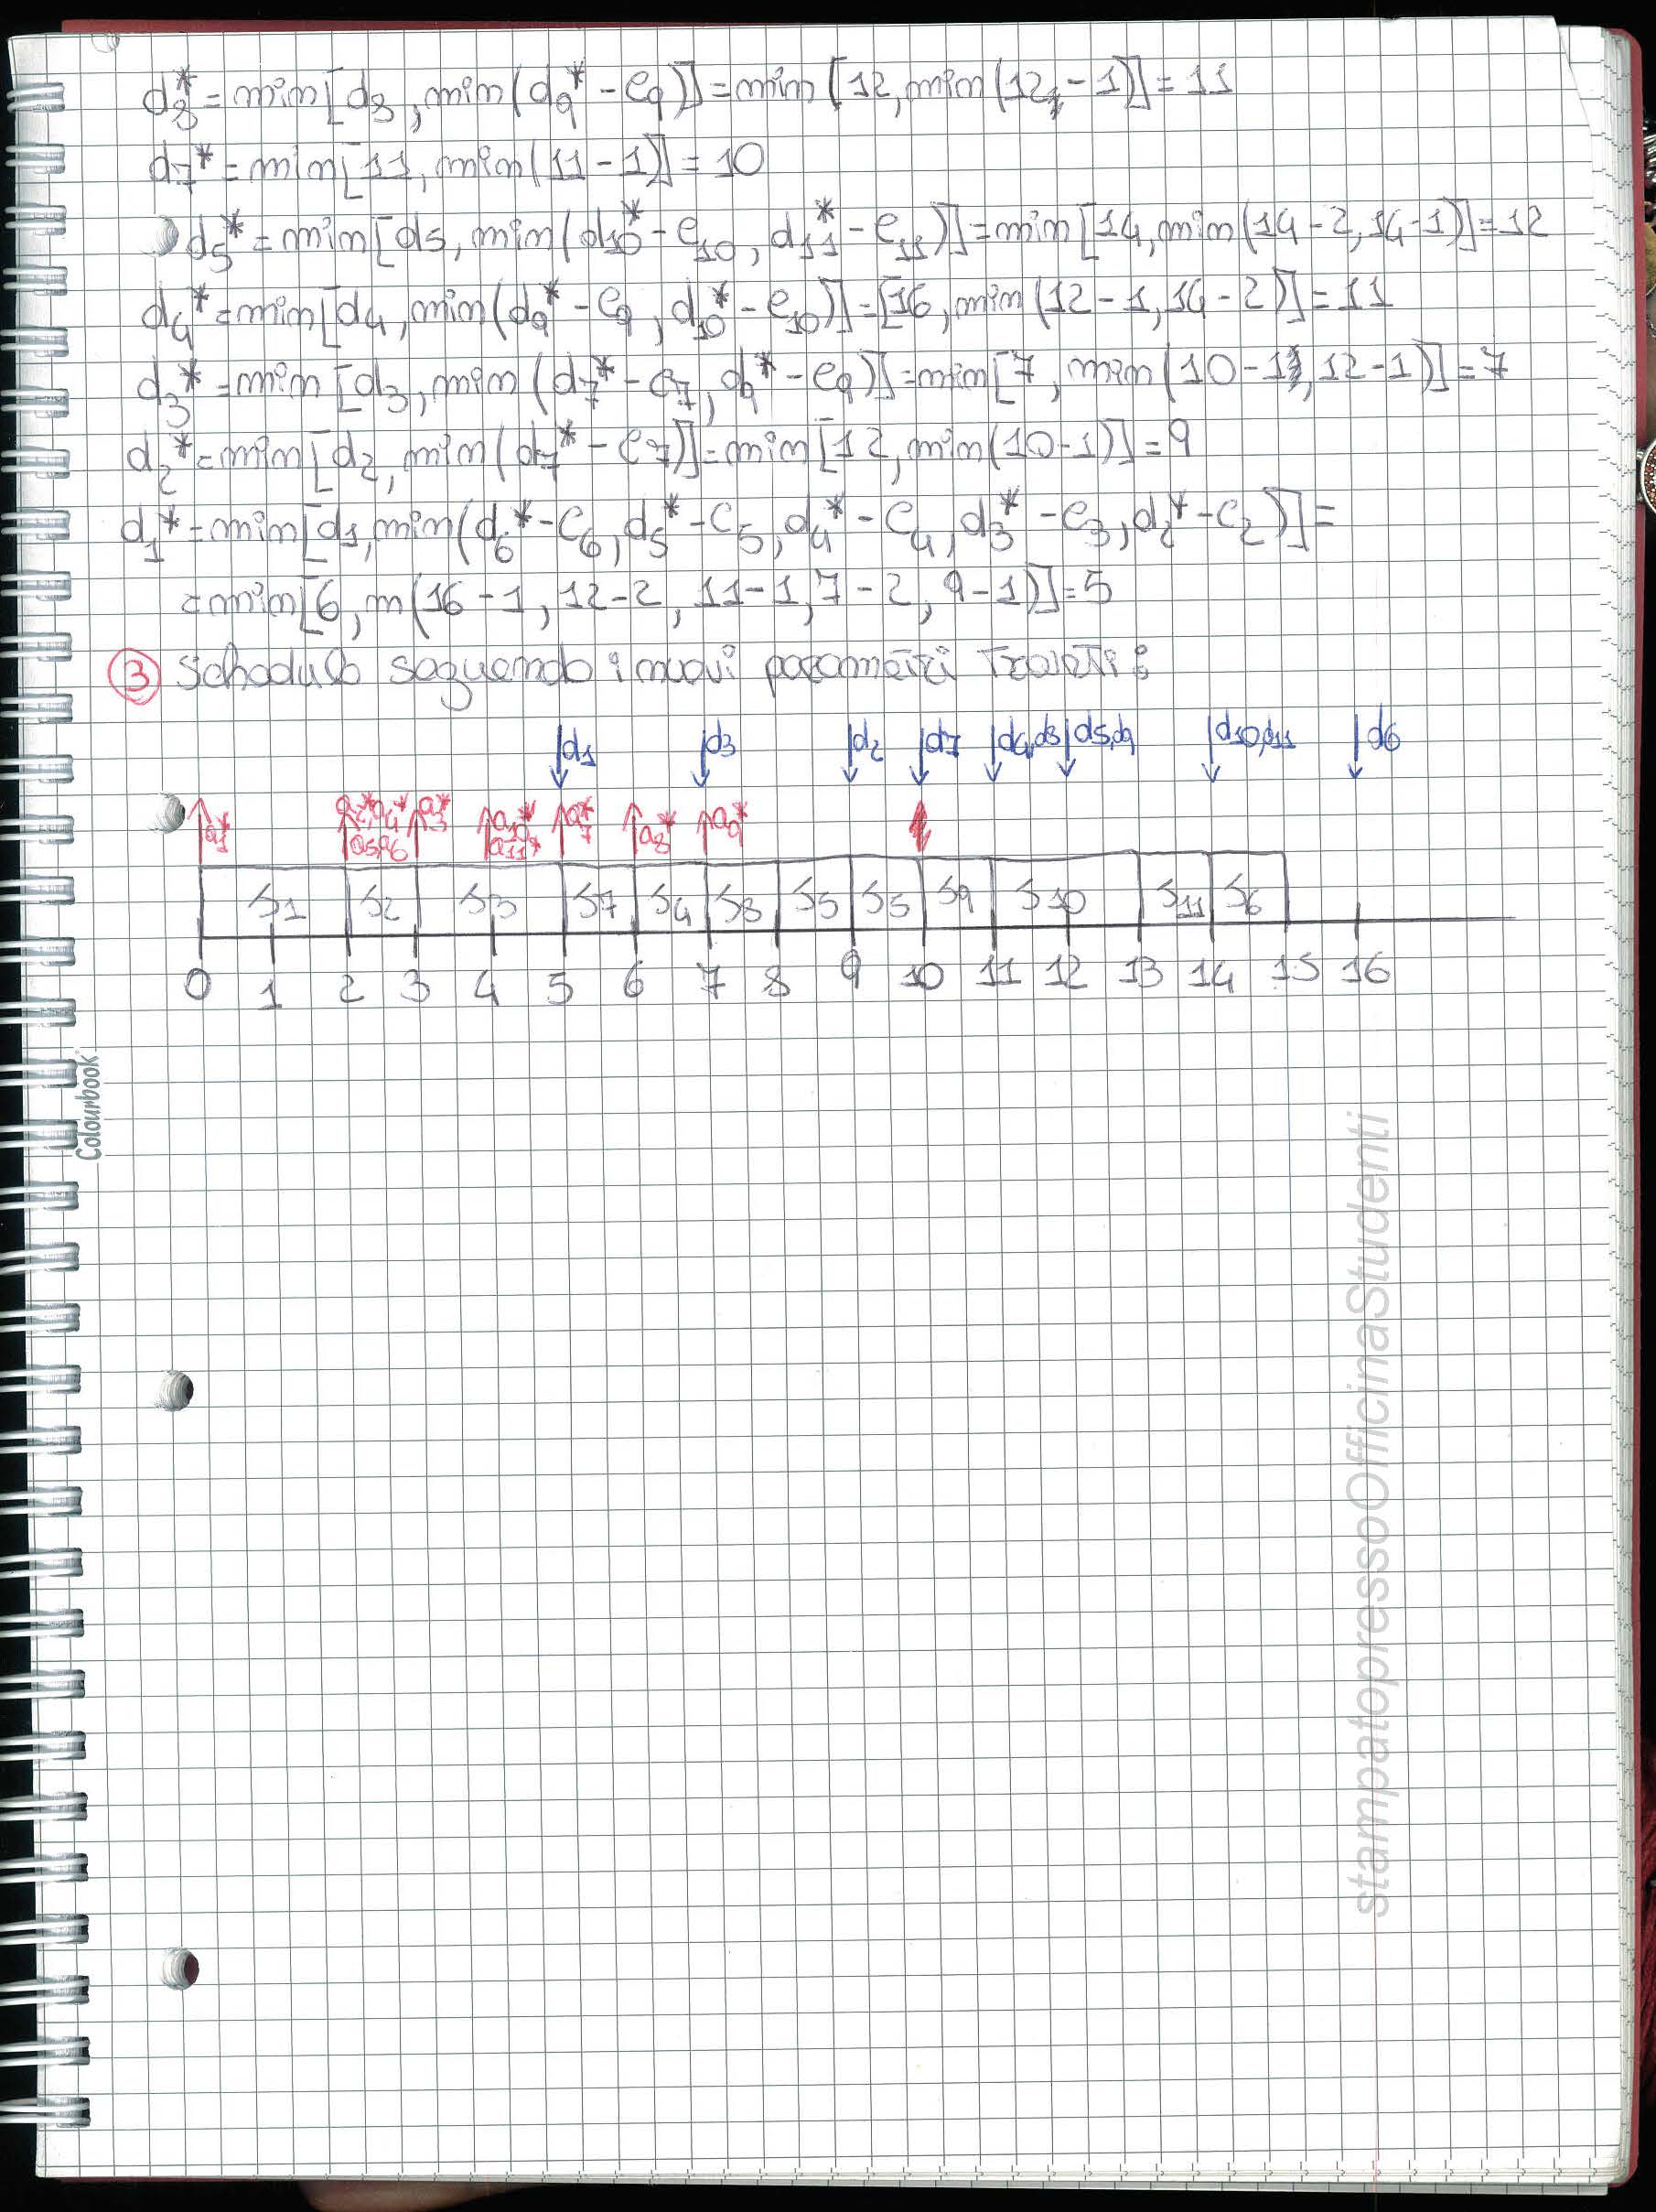 d8* = min[d8, min(d9* - e9)] = min[12, min(12, -1)] = 11
d7* = min[11, min(11-1)] = 10
d5* = min[d5, min(d10* - e10, d11* - e11)] = min[14, min(14-2, 14-1)] = 12
d4* = min[d4, min(d9* - e9, d10* - e10)] = [16, min(12-1, 14-2)] = 11
d3* = min[d3, min(d7* - e7, d9* - e9)] = min[7, min(10-1, 12-1)] = 7
d2* = min[d2, min(d7* - e7)] = min[12, min(10-1)] = 9
d1* = min[d1, min(d6* - e6, d5* - e5, d4* - e4, d3* - e3, d2* - e2)] =
= min[6, m(16-1, 12-2, 11-1, 7-2, 9-1)] = 5
3 Schedulo seguendo i nuovi parametri trovati:
d1 d3 d2 d7 d4,d8 d5,d9 d10,d11 d6
a1* a2*,a4* a5,a6 a3* a10* a11* a7* a8* a9*
S1 S2 S3 S7 S4 S8 S5 S5 S9 S10 S11 S6
0 1 2 3 4 5 6 7 8 9 10 11 12 13 14 15 16
Colourbook
stampatopressoOfficinaStudenti